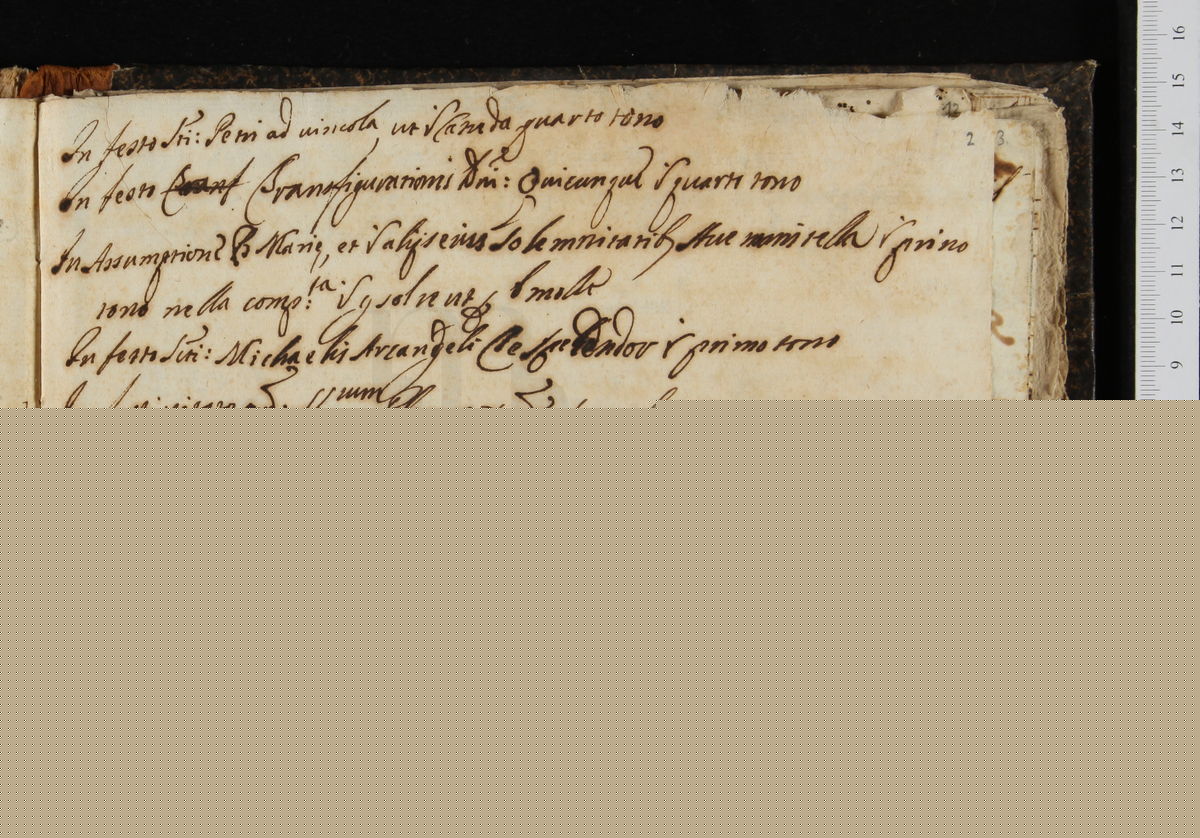 In festo Sti: Petri ad uincola ut s. Cathedra quarto tono
In festo Transfigurationis Dni: Quicunque quarti tono
In Assumptione B Marie, et alijs eius Solemnitatib, Aue maris stella primo
tono nella comp:ta g sol re ut b molle
In festo Scti: Michaelis Arcangeli Te Splendor primo tono
12
2 3.
16
15
14
13
12
11
10
9